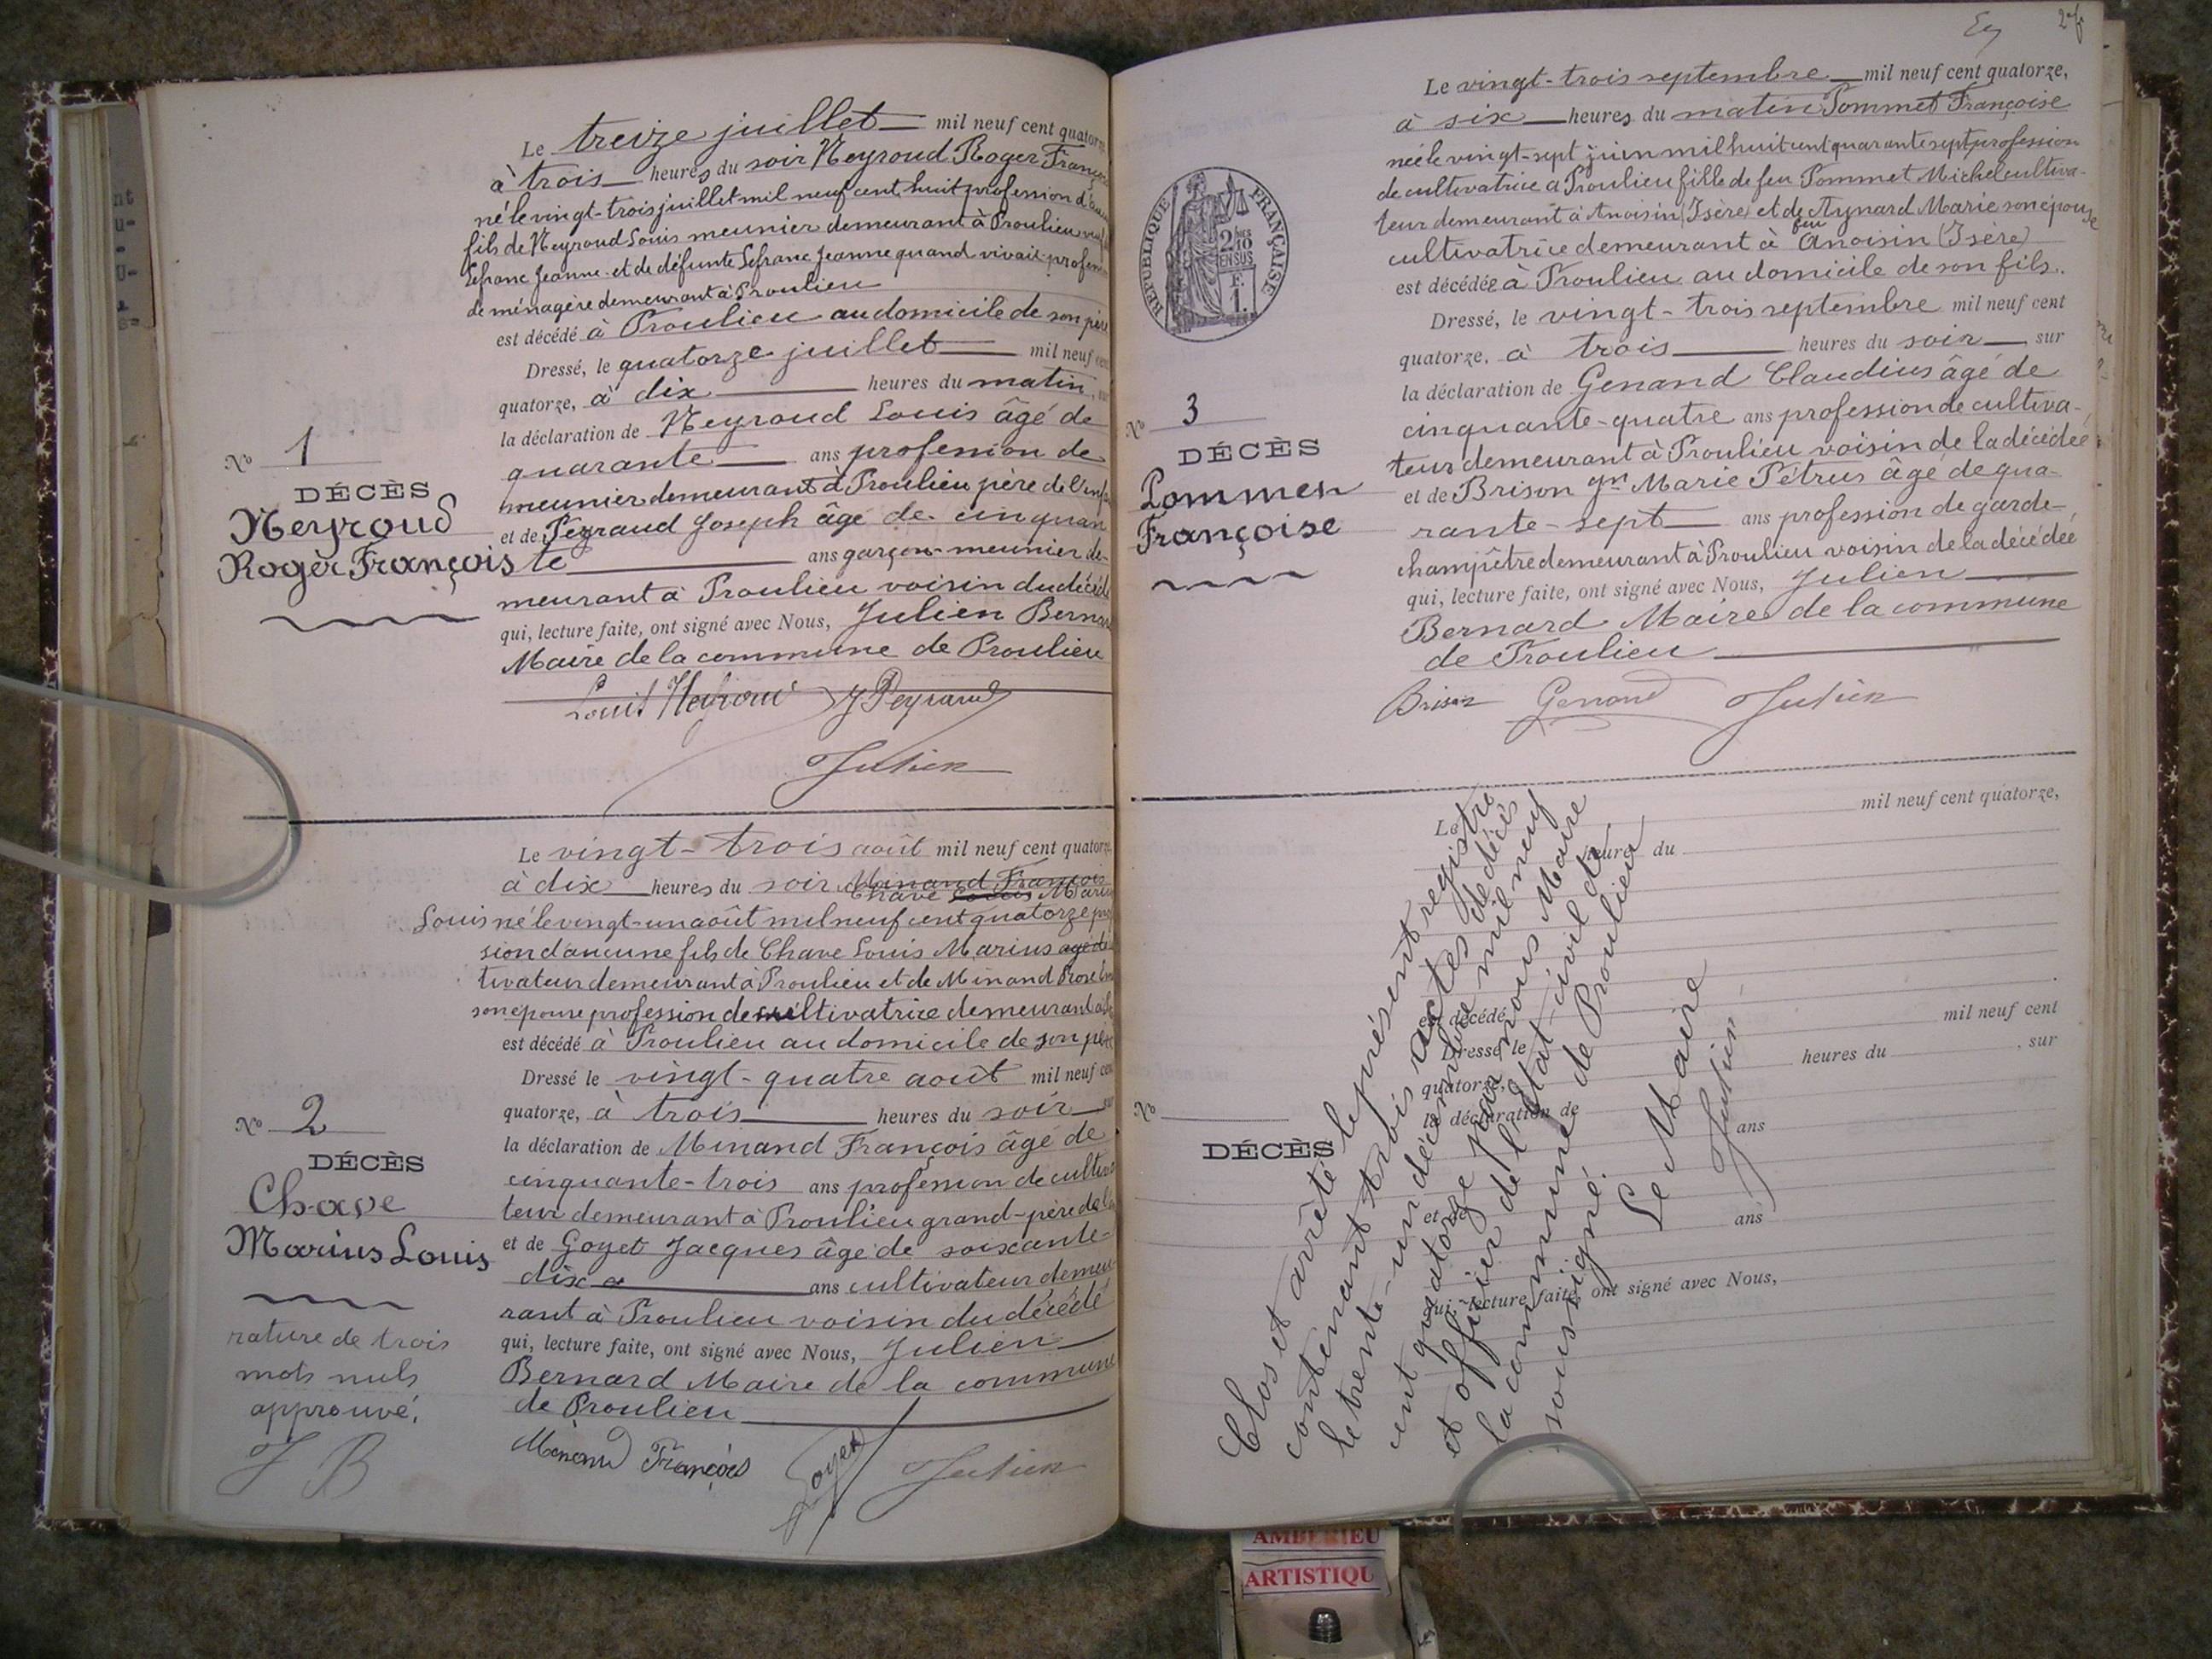 Le treize juillet mil neuf cent quatorze
à trois heures du soir Neyroud Roger François
né le vingt-trois juillet mil neuf cent huit profession d'aucune
fils de Neyroud Louis meunier demeurant à Proulieu veuf de
Lefranc Jeanne et de défunte Lefranc Jeanne quand vivait profession
de ménagère demeurant à Proulieu
est décédé à Proulieu au domicile de son père
Dressé, le quatorze juillet mil neuf cent
quatorze, à dix heures du matin, sur
la déclaration de Neyroud Louis âgé de
quarante ans profession de
meunier demeurant à Proulieu père de l'enfant
et de Peyraud Joseph âgé de cinquan
te ans garçon-meunier de-
meurant à Proulieu voisin du décédé
qui, lecture faite, ont signé avec Nous, Julien Bernard
Maire de la commune de Proulieu
Louis Neyroud J Peyraud
Julien
No 1
DÉCÈS
Neyroud
Roger François
Le vingt-trois août mil neuf cent quatorze
à dix heures du soir Minand François
Chave Louis Marius
Louis né le vingt-un août mil neuf cent quatorze
sion d'aucune fils de Chave Louis Marius âgé de
tivateur demeurant à Proulieu et de Minand Rose
son épouse profession de cultivatrice demeurant à
est décédé à Proulieu au domicile de son père
Dressé le vingt-quatre aout mil neuf cent
quatorze, à trois heures du soir sur
la déclaration de Minand François âgé de
cinquante-trois ans profession de cultiva
teur demeurant à Proulieu grand-père de
et de Goyet Jacques âgé de soixante-
dix ans cultivateur demeu
rant à Proulieu voisin du décédé
qui, lecture faite, ont signé avec Nous, Julien
Bernard Maire de la commune
de Proulieu
Minand François Goyet Julien
No 2
DÉCÈS
Chave
Marius Louis
rature de trois
mots nuls
approuvé.
J B
Le vingt-trois septembre mil neuf cent quatorze,
à six heures du matin Pommet Françoise
née le vingt-sept juin mil huit cent quarante sept profession
de cultivatrice à Proulieu fille de feu Pommet Michel cultiva-
teur demeurant à Anoisin (Isère) et de Aynard Marie son épouse
feu
cultivatrice demeurant à Anoisin (Isère)
est décédée à Proulieu au domicile de son fils.
Dressé, le vingt-trois septembre mil neuf cent
quatorze, à trois heures du soir sur
la déclaration de Genand Claudius âgé de
cinquante-quatre ans profession de cultiva-
teur demeurant à Proulieu voisin de la décédée
et de Brison Marie Pétrus âgé de qua-
rante-sept ans profession de garde-
champêtre demeurant à Proulieu voisin de la décédée
qui, lecture faite, ont signé avec Nous, Julien
Bernard Maire de la commune
de Proulieu
Brison Genand Julien
RÉPUBLIQUE FRANÇAISE
No 3
DÉCÈS
Pommer
Françoise
Le mil neuf cent quatorze,
heure du
est décédé
Dressé le mil neuf cent
quatorze, heures du , sur
la déclaration de
ans
et de
ans
qui, lecture faite, ont signé avec Nous,
No
DÉCÈS
Clos et arrêté le présent registre
contenant trois actes de décès
le trente-un décembre mil neuf
cent quatorze par nous Maire
et officier de l'état civil de
la commune de Proulieu
soussigné.
Le Maire
Julien
AMBERIEU
ARTISTIQU